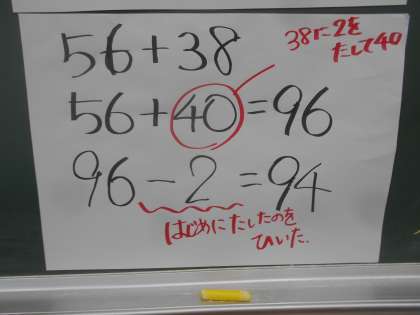 56+38
38に2を
たして40
56+40=96
96-2=94
はじめにたしたのを
ひいた.